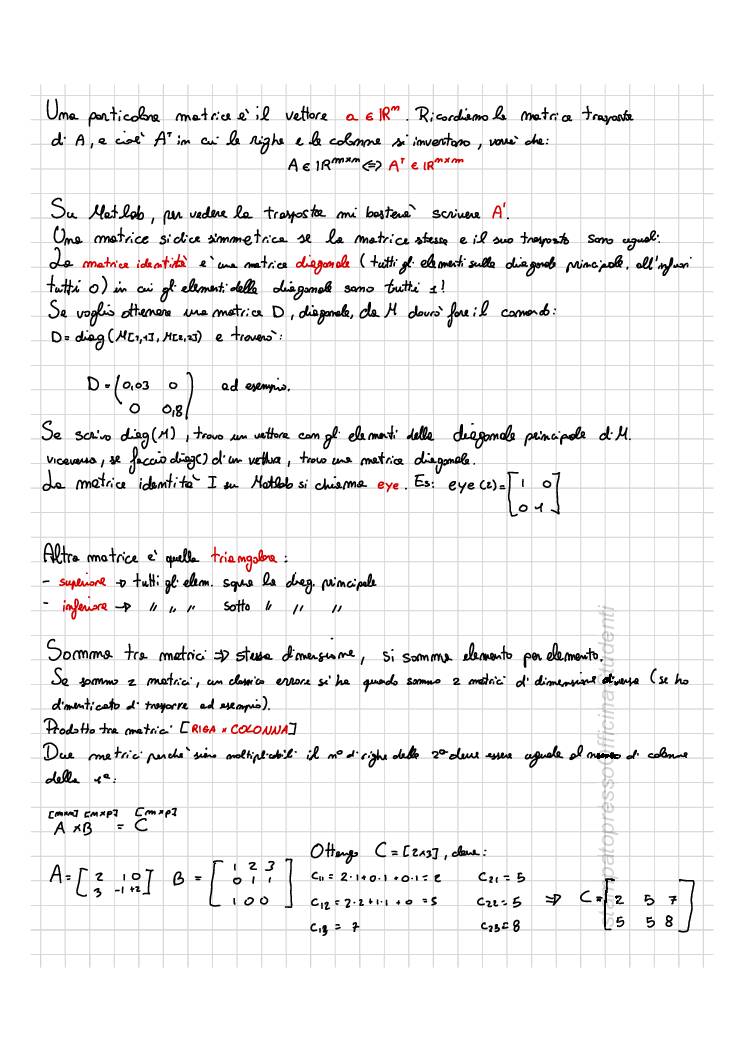 Una particolare matrice è il vettore a ∈ ℝᵐ. Ricordiamo la matrice trasposta
di A, e cioè Aᵀ in cui le righe e le colonne si invertono, varrà che:
A ∈ ℝᵐˣⁿ ⇔ Aᵀ ∈ ℝⁿˣᵐ
Su Matlab, per vedere la trasposta mi basterà scrivere A'.
Una matrice si dice simmetrica se la matrice stessa e il suo trasposto sono uguali.
La matrice identità è una matrice diagonale (tutti gli elementi sulla diagonale principale, all'infuori
tutti 0) in cui gli elementi della diagonale sono tutti 1!
Se voglio ottenere una matrice D, diagonale, da M dovrò fare il comando:
D = diag (M[1,1], M[2,2]) e troverò:
D = (0,03 0
0 0,8) ad esempio.
Se scrivo diag(M), trovo un vettore con gli elementi della diagonale principale di M.
viceversa, se faccio diag() di un vettore, trovo una matrice diagonale.
La matrice identità I su Matlab si chiama eye. Es: eye (2) = [1 0
0 1]
Altra matrice è quella triangolare:
- superiore → tutti gli elem. sopra la diag. principale
- inferiore → " " " sotto " " "
Somma tra matrici ⇒ stessa dimensione, si somma elemento per elemento.
Se sommo 2 matrici, un classico errore si ha quando sommo 2 matrici di dimensione diversa (se ho
dimenticato di trasporre ad esempio).
Prodotto tra matrici [RIGA × COLONNA]
Due matrici perché siano moltiplicabili il n° di righe della 2ª deve essere uguale al numero di colonne
della 1ª:
[m×n] [n×p] [m×p]
A × B = C
Ottengo C = [2×3], dove:
A = [2 1 0
3 -1 +2] B = [1 2 3
0 1 1
1 0 0]
C₁₁ = 2·1+0·1+0·1 = 2 C₂₁ = 5
C₁₂ = 2·2+1·1+0 = 5 C₂₂ = 5 ⇒ C = [2 5 7
5 5 8]
C₁₃ = 7 C₂₃ = 8
stampatopressoOfficinaStudenti